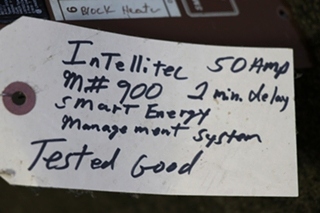 6 Block Heater
Intellitec 50 Amp
M# 900 2 min. delay
Smart Energy
Management System
Tested Good